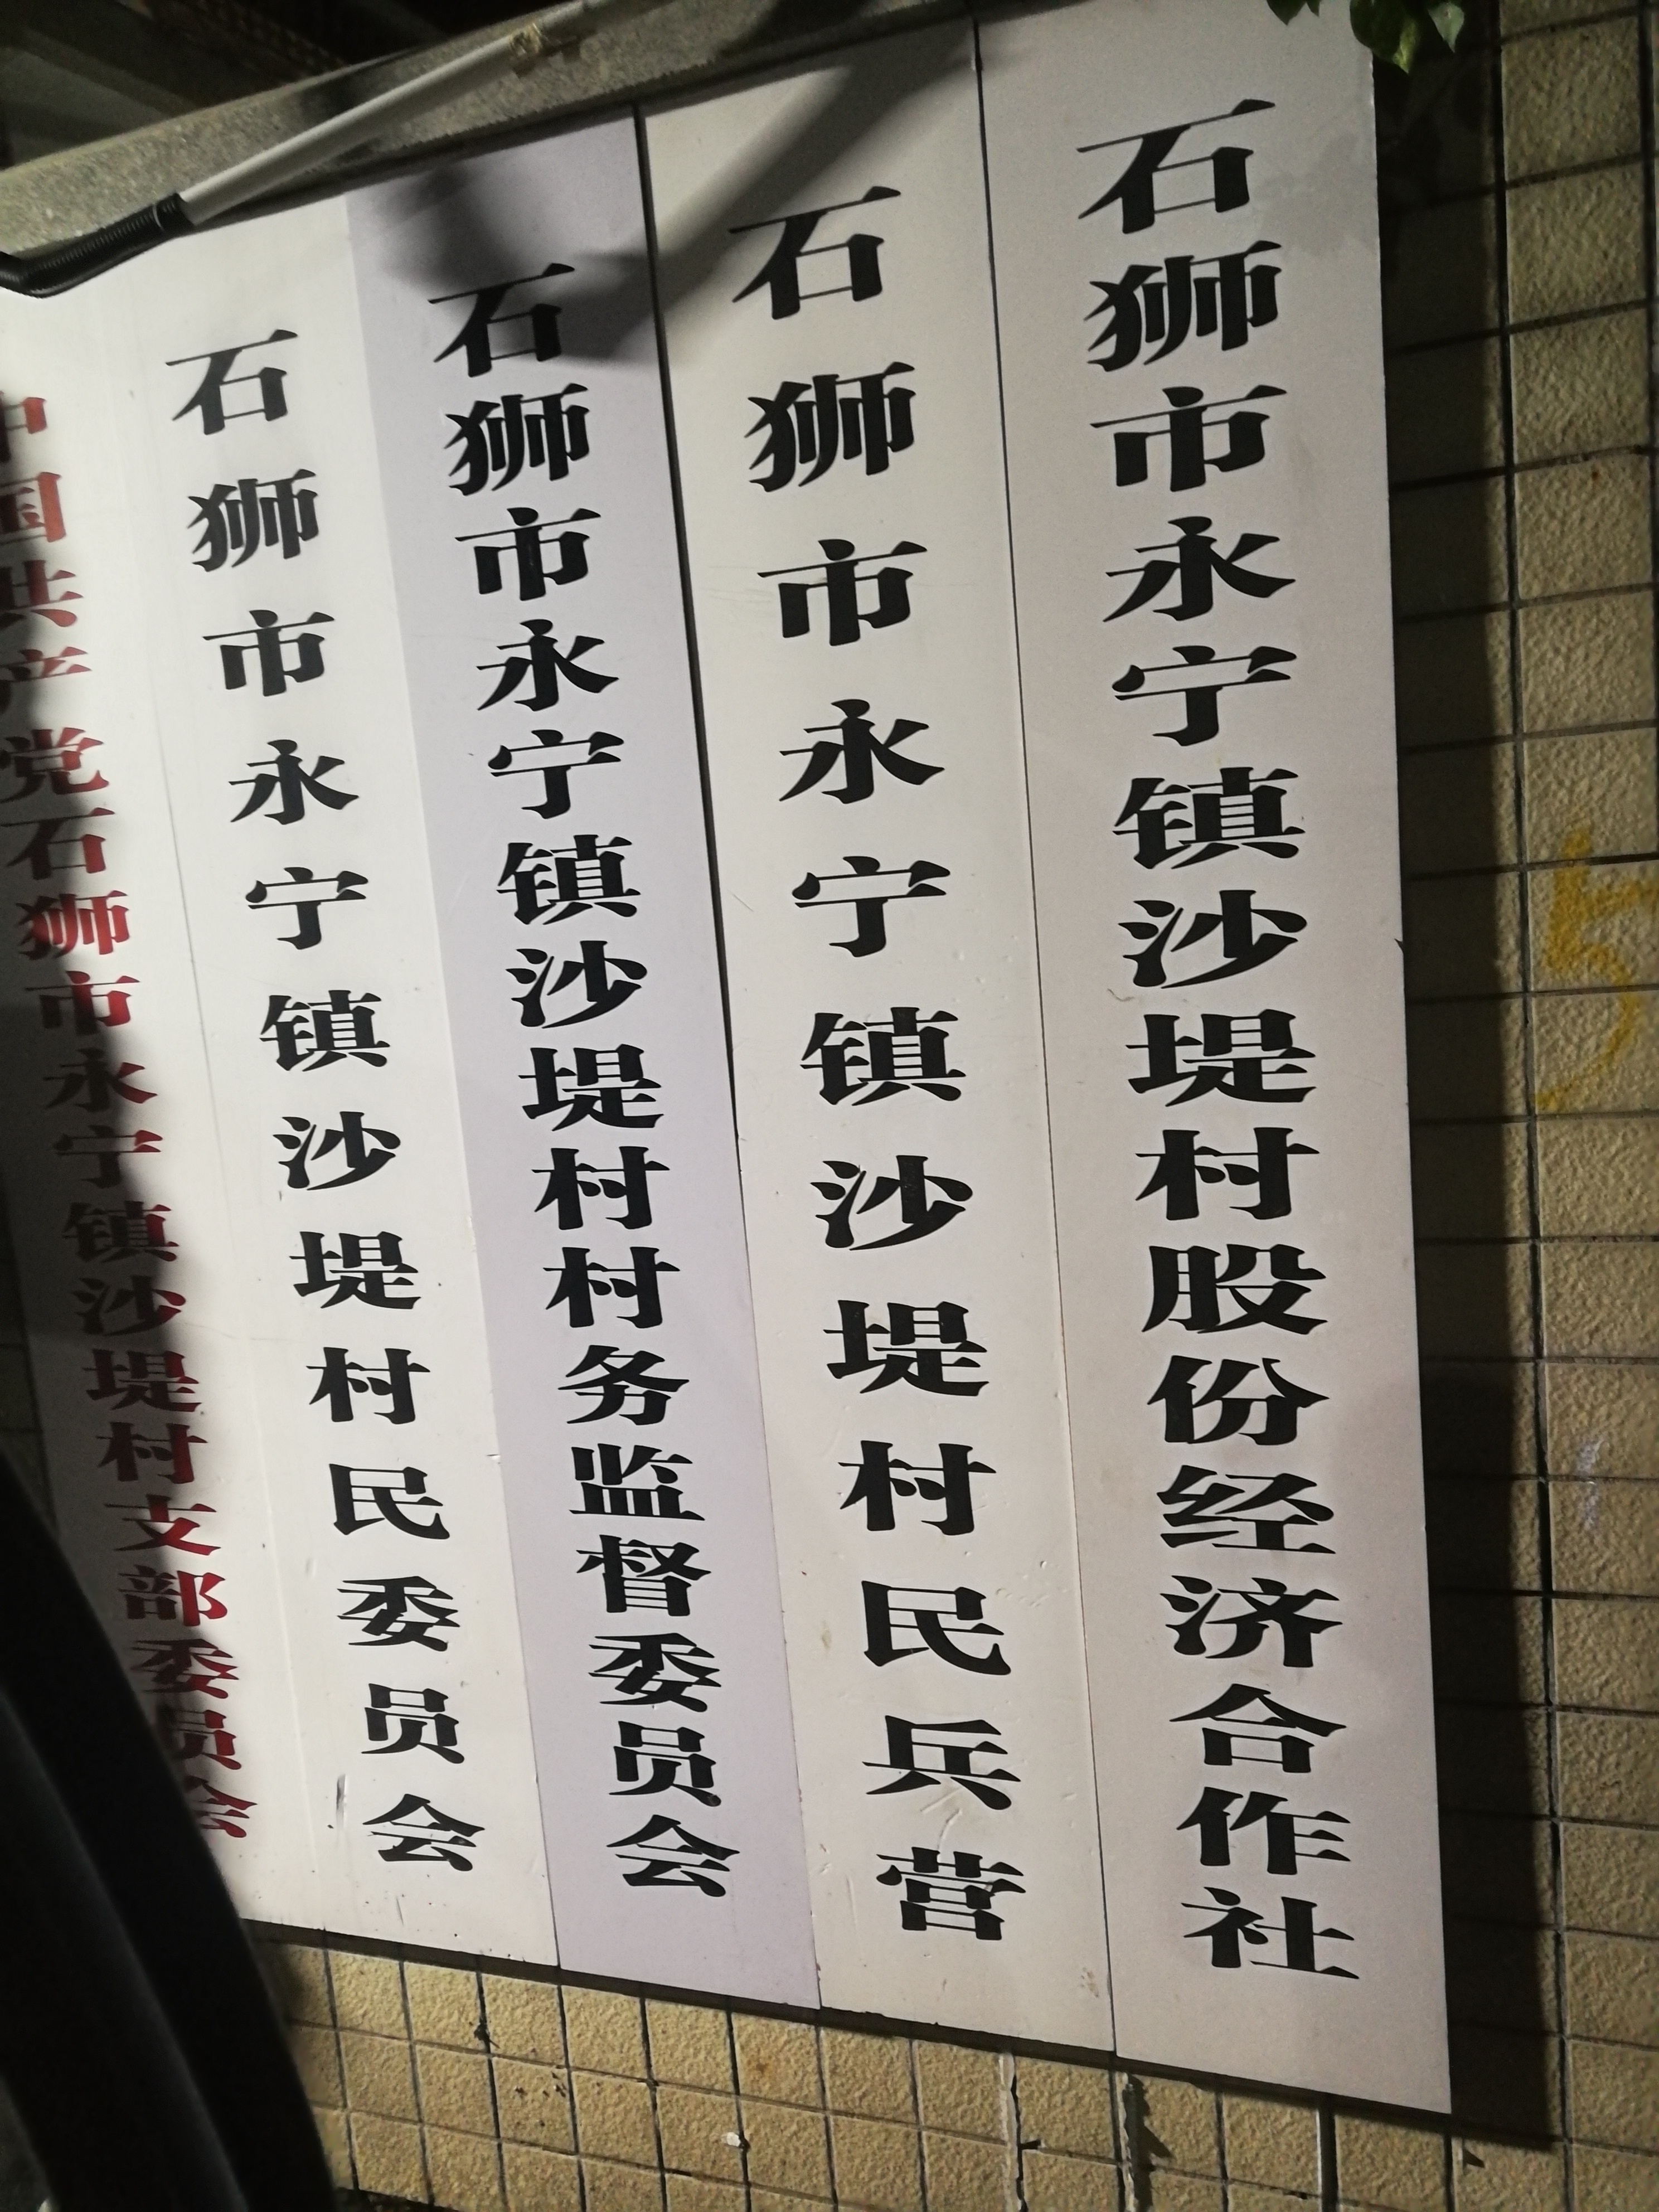 中国共产党石狮市永宁镇沙堤村支部委员会
石狮市永宁镇沙堤村民委员会
石狮市永宁镇沙堤村村务监督委员会
石狮市永宁镇沙堤村民兵营
石狮市永宁镇沙堤村股份经济合作社